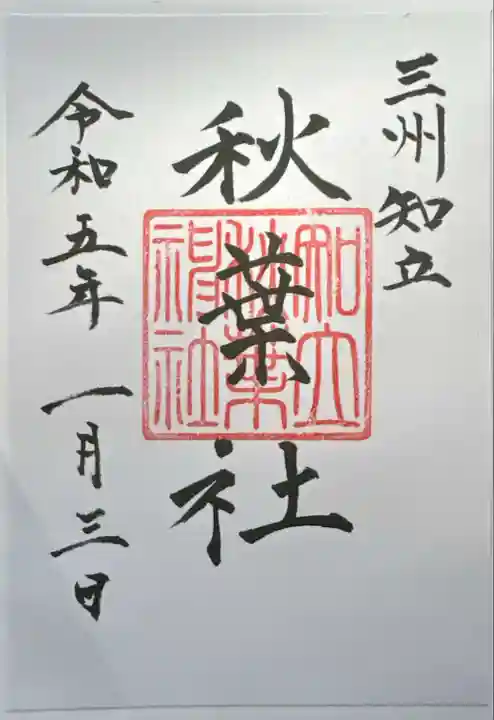 三州知立
秋葉社
知立
秋葉
神社
令和五年 一月三日